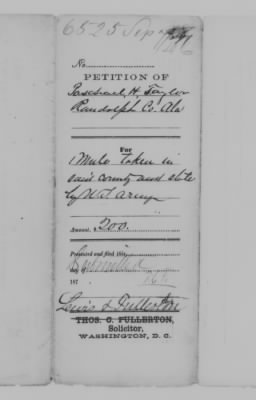 6525 Sep
No.
PETITION OF
Paschael H. Taylor
Randolph Co. Ala
For
1 Mule taken in
said county and state
by U.S. Army
Amount, $ 200.
Presented and filed this
day of
187
Lewis & Fullerton
THOS. C. FULLERTON,
Solicitor,
WASHINGTON, D. C.